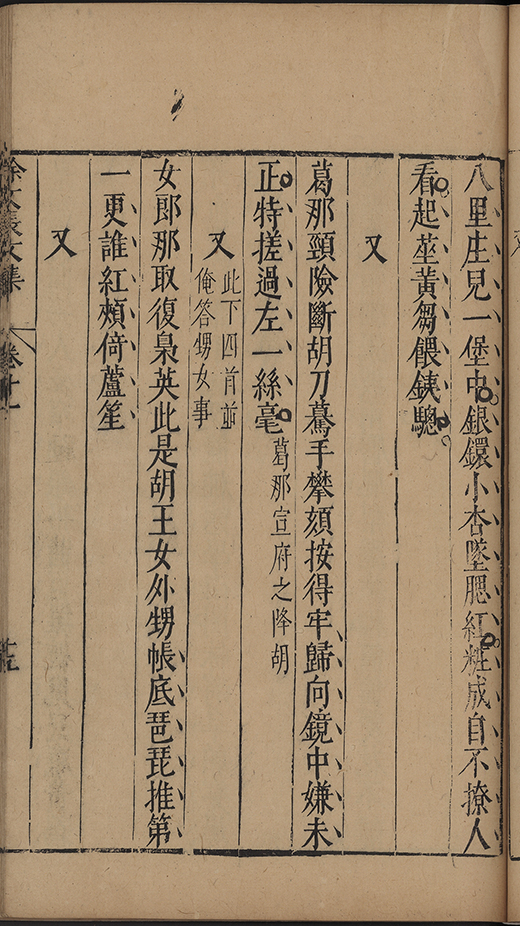 八里庄見一堡中銀鐶小杏墜腮紅粧成自不撩人
看起莝黃芻餵銕驄
又
葛那頸險斷胡刀驀手攀頦按得牢歸向鏡中嫌未
正特搓過左一絲毫葛那宣府之降胡
又此下四首並
俺答甥女事
女郎那取復梟英此是胡王女外甥帳底琵琶推第
一更誰紅頰倚蘆笙
又
徐文長文集
卷十一